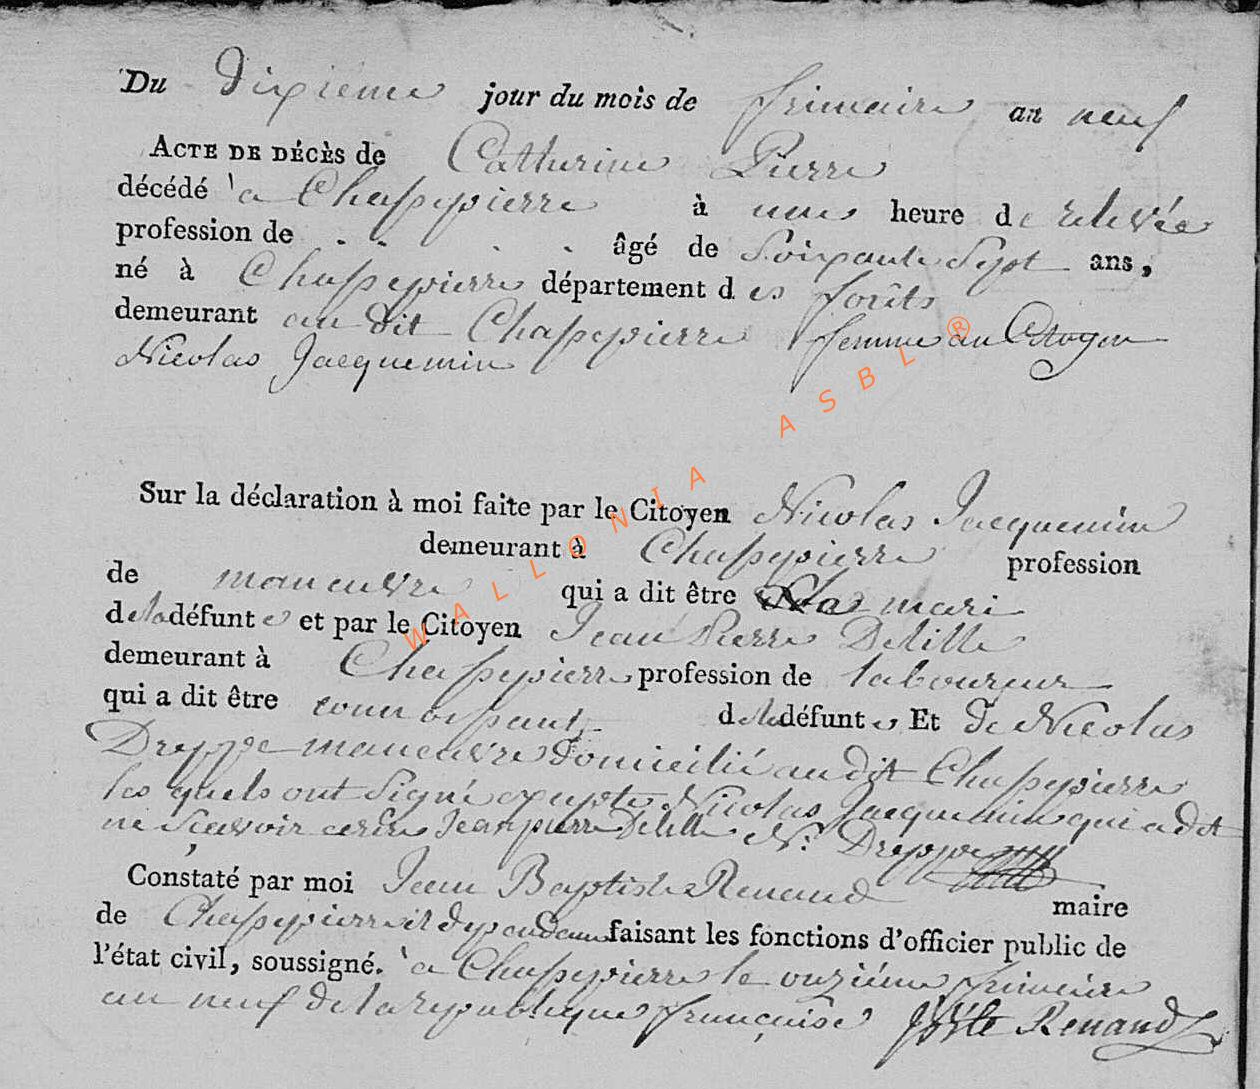 Du Dixieme jour du mois de frimaire an neuf
ACTE DE DÉCÈS de Catherine Pierre
décédé à Chassepierre à une heure de relevée
profession de . . . . âgé de Soixante Sept ans,
né à Chassepierre département des forêts
demeurant au dit Chassepierre femme au Citoyen
Nicolas Jacquemin
WALLONIA ASBL ®
Sur la déclaration à moi faite par le Citoyen Nicolas Jacquemin
demeurant à Chassepierre profession
de manœuvre qui a dit être mari
de la défunte et par le Citoyen Jean Pierre Delille
demeurant à Chassepierre profession de laboureur
qui a dit être connoissant de la défunte Et de Nicolas
Dreppe manœuvre domicilié au dit Chassepierre
les quels ont Signé excepté Nicolas Jacquemin qui a dit
ne Scavoir Jean pierre Delille N: Dreppe
Constaté par moi Jean Baptiste Renaud maire
de Chassepierre et faisant les fonctions d'officier public de
l'état civil, soussigné. à Chassepierre le onziéme frimaire
an neuf de la republique françoise Renaud